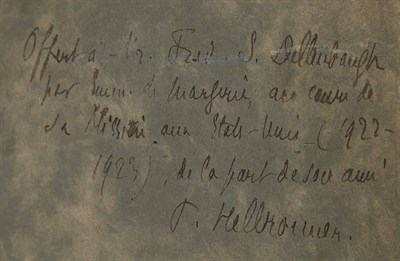 Offert à Mr. Fred S. Dellenbaugh
par Emm. de Margerie, au cours de
sa Mission aux Etats-Unis (1922-
1923), de la part de son ami
P. Helbronner.